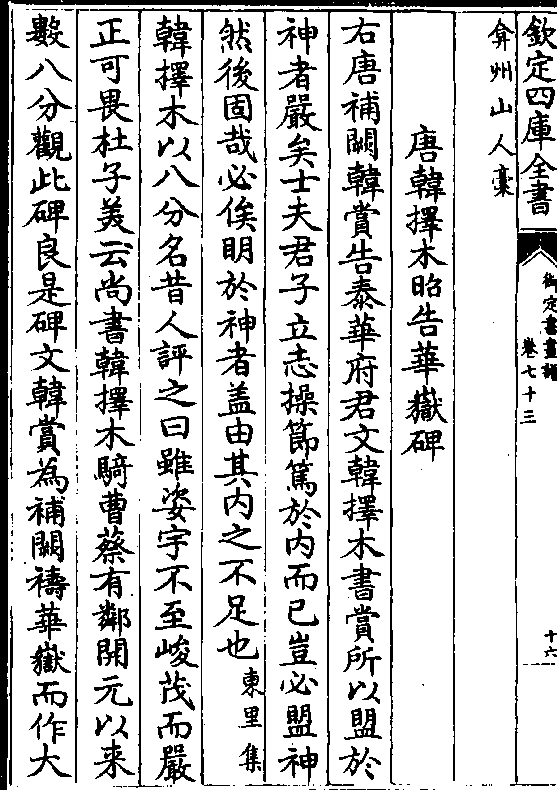 欽定四庫全書
御定書畫譜
卷七十三
十六
弇州山人藁
唐韓擇木昭告華嶽碑
右唐補闕韓賞告泰華府君文韓擇木書賞所以盟於
神者嚴矣士夫君子立志操節篤於内而已豈必盟神
然後固哉必俟明於神者盖由其内之不足也東里集
韓擇木以八分名昔人評之曰雖姿宇不至峻茂而嚴
正可畏杜子美云尚書韓擇木騎曹蔡有鄰開元以来
數八分觀此碑良是碑文韓賞為補闕禱華嶽而作大